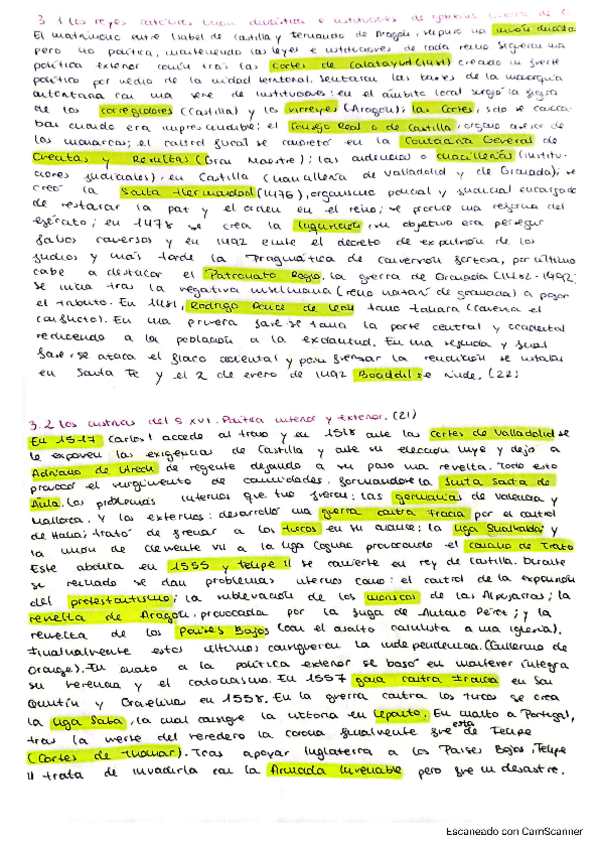 3.1 Los reyes católicos. Unión dinástica e instituciones de gobierno. Guerra de G.
El matrimonio entre Isabel de Castilla y Fernando de Aragón, supuso una unión dinástica
pero no política, manteniendo las leyes e instituciones de cada reino. Siguieron una
política exterior común tras las Cortes de Calatayud (1481) creando un fuerte
político por medio de la unidad territorial. Sentarían las bases de la monarquía
autoritaria con una serie de instituciones: en el ámbito local surgió la figura
de los corregidores (Castilla) y los virreyes (Aragón); las Cortes, solo se convoca-
ban cuando era imprescindible; el Consejo Real o de Castilla, órgano asesor de
los monarcas; el control fiscal se concretó en la Contaduría General de
Cuentas y Rentas (Gran Maestre); las audiencias o chancillerías (institu-
ciones judiciales), en Castilla (chancillería de Valladolid y de Granada); se
creó la Santa Hermandad (1476), organismo policial y judicial encargado
de restaurar la paz y el orden en el reino; se produce una reforma del
ejército; en 1478 se crea la Inquisición su objetivo era perseguir
falsos conversos y en 1492 emite el decreto de expulsión de los
judíos y más tarde la Pragmática de conversión forzosa, por último
cabe a destacar el Patronato Regio. La guerra de Granada (1482-1492)
se inicia tras la negativa musulmana (reino nazarí de granada) a pagar
el tributo. En 1481, Rodrigo Ponce de León toma (comienza el
conflicto). En una primera fase se toma la parte central y occidental
reduciendo a la población a la esclavitud. En una segunda y final
fase, se ataca el flaco occidental y para forzar la rendición se instalan
en Santa Fe y el 2 de enero de 1492 Boabdil se rinde. (22)
3.2 Los austrias del S XVI. Política interior y exterior. (21)
En 1517 Carlos I accede al trono y en 1518 ante las Cortes de Valladolid se
le exponen las exigencias de Castilla y ante su elección huye y dejo a
Adriano de Utrech de regente dejando a su paso una revuelta. Todo esto
provocó el surgimiento de comunidades, formandose la Junta Santa de
Ávila. Los problemas internos que tuvo fueron: las germanías de Valencia y
Mallorca. Y los externos: desarrolló una guerra contra Francia por el control
de Italia; trató de frenar a los turcos en su avance; la Liga Smalkalda y
la unión de Clemente VII a la Liga Cognac provocando el concilio de Trento
Este abdica en 1555 y Felipe II se convierte en rey de Castilla. Durante
su reinado se dan problemas internos como: el control de la expansión
del protestantismo; la sublevación de los moriscos de las Alpujarras; la
revuelta de Aragón, provocada por la fuga de Antonio Pérez; y la
revuelta de los Países Bajos (con el asalto calvinista a una iglesia).
Finalmente estos últimos consiguieron la independencia. (Guillermo de
Orange). En cuanto a la política exterior se basó en mantener íntegra
su herencia y el catolicismo. En 1557 gana contra Francia en San
Quintín y Gravelinas en 1558. En la guerra contra los turcos se crea
la Liga Santa, la cual consigue la victoria en Lepanto. En cuanto a Portugal,
tras la muerte del heredero la corona finalmente fue esta de Felipe
(Cortes de Thomar). Tras apoyar Inglaterra a los Países Bajos, Felipe
II trata de invadirla con la Armada Invencible pero fue un desastre.
Escaneado con CamScanner